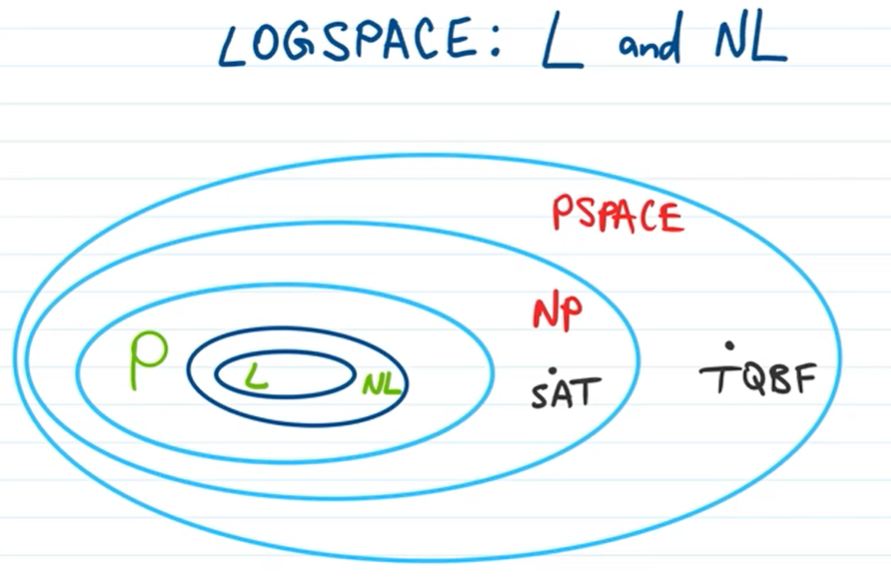 LOGSPACE: L and NL
PSPACE
NP
P
L
NL
SAT
TQBF